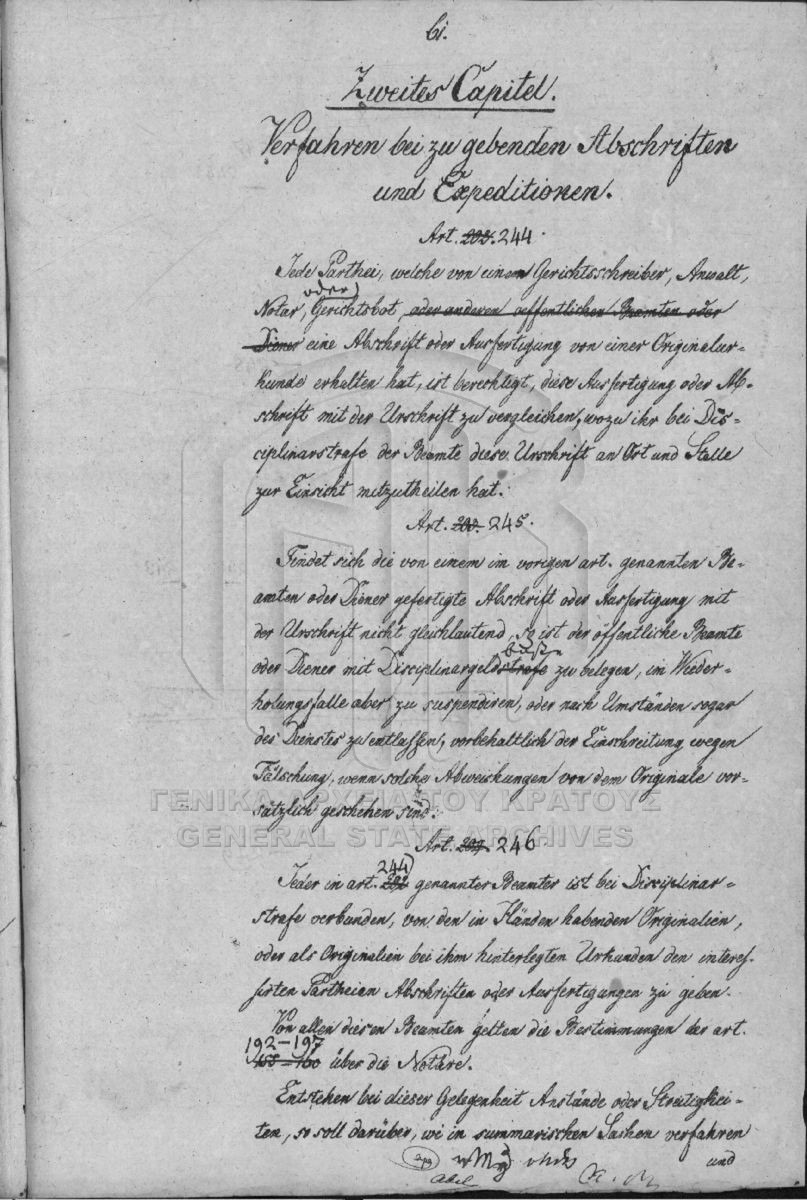 61.
Zweites Capitel.
Verfahren bei zu gebenden Abschriften
und Expeditionen.
Art. 202. 244.
Jede Parthei, welche von einem Gerichtsschreiber, Anwalt,
oder
Notar, Gerichtsbot, oder anderen oeffentlichen Beamten oder
Diener eine Abschrift oder Ausfertigung von einer Originalur-
kunde erhalten hat, ist berechtigt, diese Ausfertigung oder Ab-
schrift mit der Urschrift zu vergleichen, wozu ihr bei Dis-
ciplinarstrafe der Beamte diese Urschrift an Ort und Stelle
zur Einsicht mitzutheilen hat.
Art. 203. 245.
Findet sich die von einem im vorigen art. genannten Be-
amten oder Diener gefertigte Abschrift oder Ausfertigung mit
der Urschrift nicht gleichlautend, so ist der öffentliche Beamte
buße
oder Diener mit Disciplinargeldstrafe zu belegen, im Wieder-
holungsfalle aber zu suspendiren, oder nach Umständen sogar
des Dienstes zu entlassen, vorbehaltlich der Einschreitung wegen
Fälschung, wenn solche Abweichungen von dem Originale vor-
sätzlich geschehen sind.
ΓΕΝΙΚΑ ΑΡΧΕΙΑ ΤΟΥ ΚΡΑΤΟΥΣ
GENERAL STATE ARCHIVES
Art. 204. 246
244
Jeder in art. 202 genannter Beamter ist bei Disciplinar-
strafe verbunden, von den in Händen habenden Originalien,
oder als Originalien bei ihm hinterlegten Urkunden den interes-
sirten Partheien Abschriften oder Ausfertigungen zu geben.
Von allen diesen Beamten gelten die Bestimmungen der art.
192–197
über die Notäre.
Entstehen bei dieser Gelegenheit Anstände oder Streitighei-
ten, so soll darüber, wi in summarischen Sachen verfahren
und